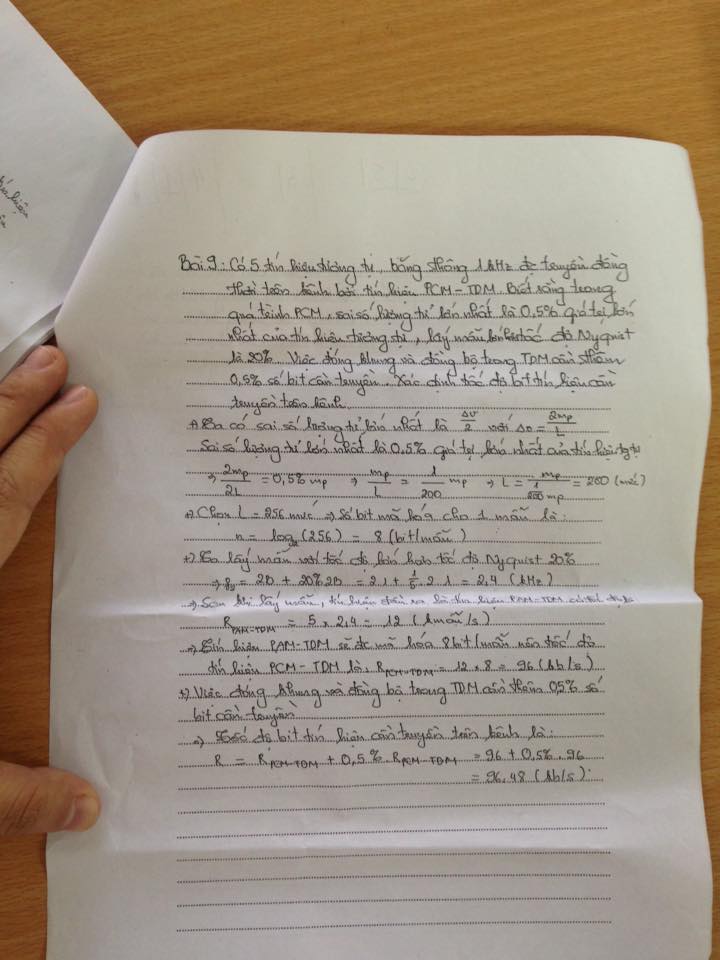 Bài 9: Có 5 tín hiệu tương tự, băng thông 1 kHz đc truyền đồng
thời trên kênh bởi tín hiệu PCM-TDM. Biết rằng trong
quá trình PCM, sai số lượng tử lớn nhất là 0,5% giá trị lớn
nhất của tín hiệu tương tự, lấy mẫu lớn hơn tốc độ Nyquist
là 20%. Việc đóng khung và đồng bộ trong TDM cần thêm
0,5% số bit cần truyền. Xác định tốc độ bit tín hiệu cần
truyền trên kênh.
+) Ta có sai số lượng tử lớn nhất là Δv/2 với Δv = 2mp/L
Sai số lượng tử lớn nhất là 0,5% giá trị lớn nhất của tín hiệu tg tự
⇒ 2mp/2L = 0,5% mp ⇒ mp/L = 1/200 mp ⇒ L = mp/(1/200 mp) = 200 (mức)
+) Chọn L = 256 mức ⇒ Số bit mã hóa cho 1 mẫu là:
n = log₂(256) = 8 (bit/mẫu)
+) Ta lấy mẫu với tốc độ lớn hơn tốc độ Nyquist 20%
⇒ = 2B + 20%2B = 2.1 + 1/5.2.1 = 2,4 (kHz)
⇒ Sau khi lấy mẫu, tín hiệu đầu ra là tín hiệu PAM-TDM có tốc độ là
R_PAM-TDM = 5 × 2,4 = 12 (kmẫu/s)
⇒ Tín hiệu PAM-TDM sẽ đc mã hóa 8bit/mẫu nên tốc độ
tín hiệu PCM-TDM là: R_PCM-TDM = 12 × 8 = 96 (kb/s)
+) Việc đóng khung và đồng bộ trong TDM cần thêm 0,5% số
bit cần truyền
⇒ Tốc độ bit tín hiệu cần truyền trên kênh là:
R = R_PCM-TDM + 0,5%.R_PCM-TDM = 96 + 0,5%.96
= 96,48 (kb/s).